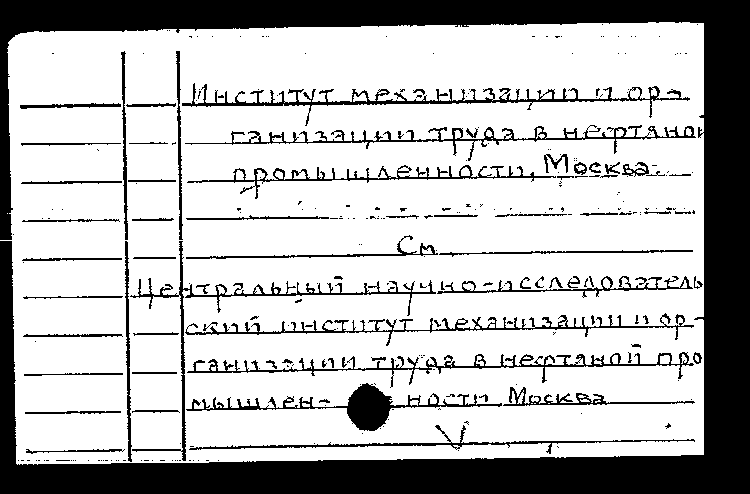 Институт механизации и ор-
ганизации труда в нефтяной
промышленности, Москва.
См
Центральный научно-исследователь
ский институт механизации и ор-
ганизации труда в нефтяной про
мышлен- ности Москва